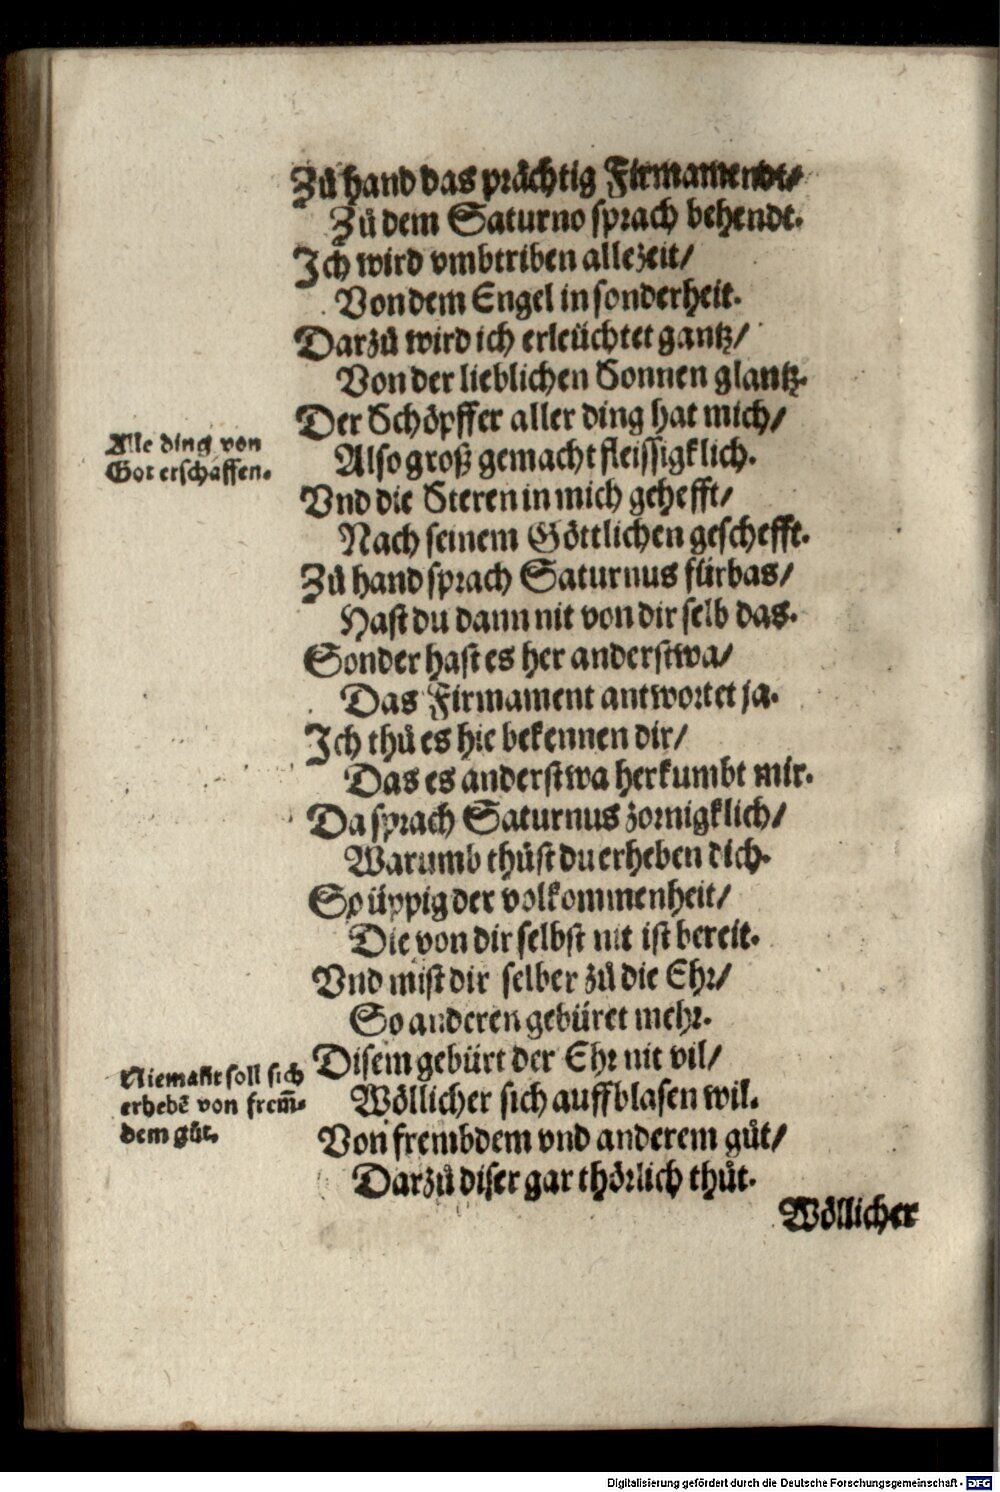 Zů hand das prächtig Firmamendt/
Zů dem Saturno sprach behendt.
Ich wird vmbtriben allezeit/
Von dem Engel in sonderheit.
Darzů wird ich erleüchtet gantz/
Von der lieblichen Sonnen glantz.
Der Schöpffer aller ding hat mich/
Alle ding von
Got erschaffen.
Also groß gemacht fleissigklich.
Vnd die Steren in mich gehefft/
Nach seinem Göttlichen geschefft.
Zů hand sprach Saturnus fürbas/
Hast du dann nit von dir selb das.
Sonder hast es her anderstwa/
Das Firmament antwortet ja.
Ich thů es hie bekennen dir/
Das es anderstwa herkumbt mir.
Da sprach Saturnus zornigklich/
Warumb thůst du erheben dich.
So üppig der volkommenheit/
Die von dir selbst nit ist bereit.
Vnd mist dir selber zů die Ehr/
So anderen gebüret mehr.
Disem gebürt der Ehr nit vil/
Niemañt soll sich
erhebẽ von frem̃-
dem gůt.
Wöllicher sich auffblasen wil.
Von frembdem vnd anderem gůt/
Darzů diser gar thörlich thůt.
Wöllicher
Digitalisierung gefördert durch die Deutsche Forschungsgemeinschaft - DFG